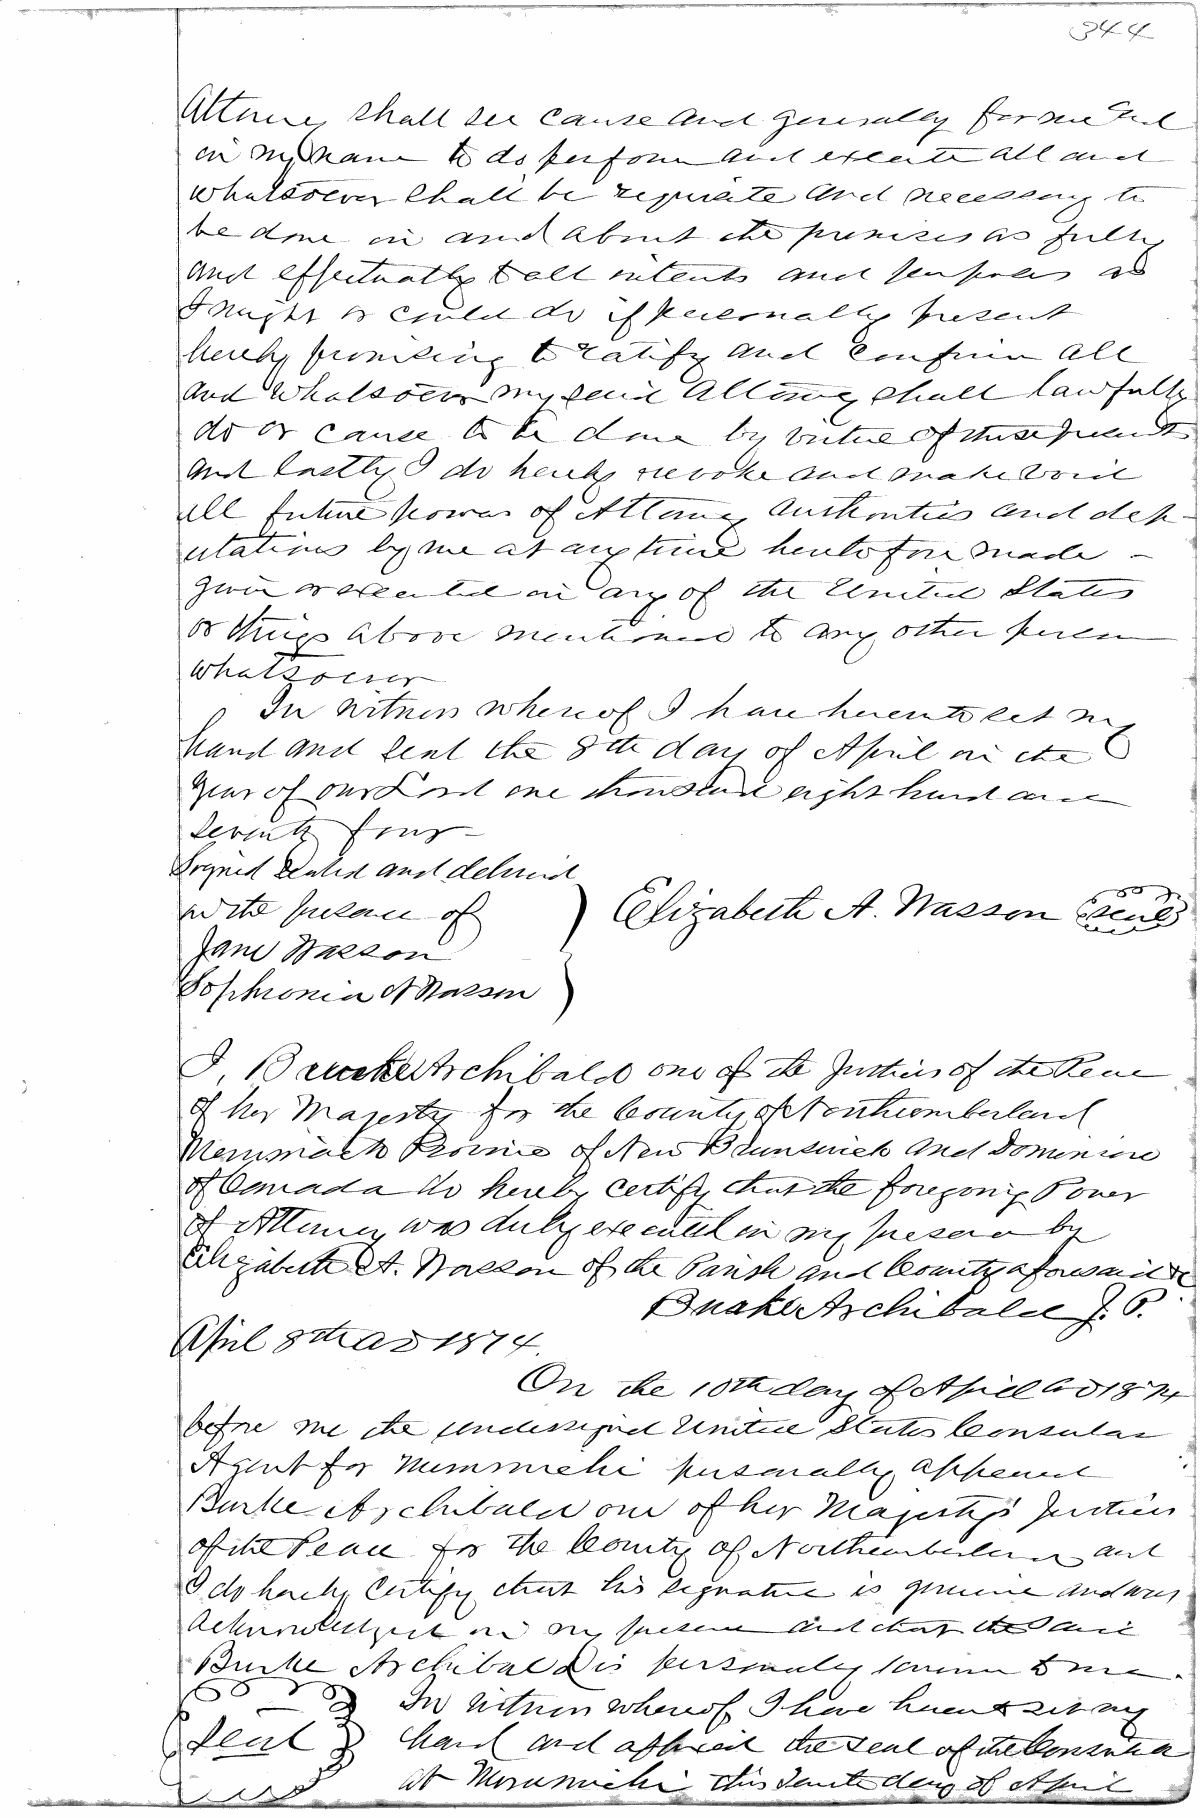 344
Attorney shall see cause and generally for me and
in my name to do perform and execute all and
whatsoever shall be requisite and necessary to
be done in and about the premises as fully
and effectually to all intents and purposes as
I might or could do if personally present
hereby promising to ratify and confirm all
and whatsoever my said Attorney shall lawfully
do or cause to be done by virtue of these presents
and lastly I do hereby revoke and make void
all future powers of Attorney Authorities and dep-
utations by me at any time heretofore made -
given or executed in any of the United States
or things above mentioned to any other person
whatsoever
In witness whereof I have hereunto set my
hand and seal the 8th day of April in the
year of our Lord one thousand eight hund and
seventy four -
Signed sealed and delivered
in the presence of
Elizabeth A. Wasson seal
Jane Wasson
Sophronia A Wasson
I, Burke Archibald one of the Justices of the Peace
of her Majesty for the County of Northumberland
Province of New Brunswick and Dominion
of Canada do hereby certify that the foregoing Power
of Attorney was duly executed in my presence by
Elizabeth A. Wasson of the Parish and County aforesaid
Burke Archibald J. P.
April 8th AD 1874.
On the 10th day of April AD 1874
before me the undersigned United States Consular
Agent for personally appeared
Burke Archibald one of her Majesty's Justices
of the Peace for the County of Northumberland and
I do hereby certify that his signature is genuine and was
acknowledged in my presence and that the said
Burke Archibald is personally known to me.
Seal
In witness whereof I have hereunto set my
hand and affixed the seal of the Consulate
at this tenth day of April